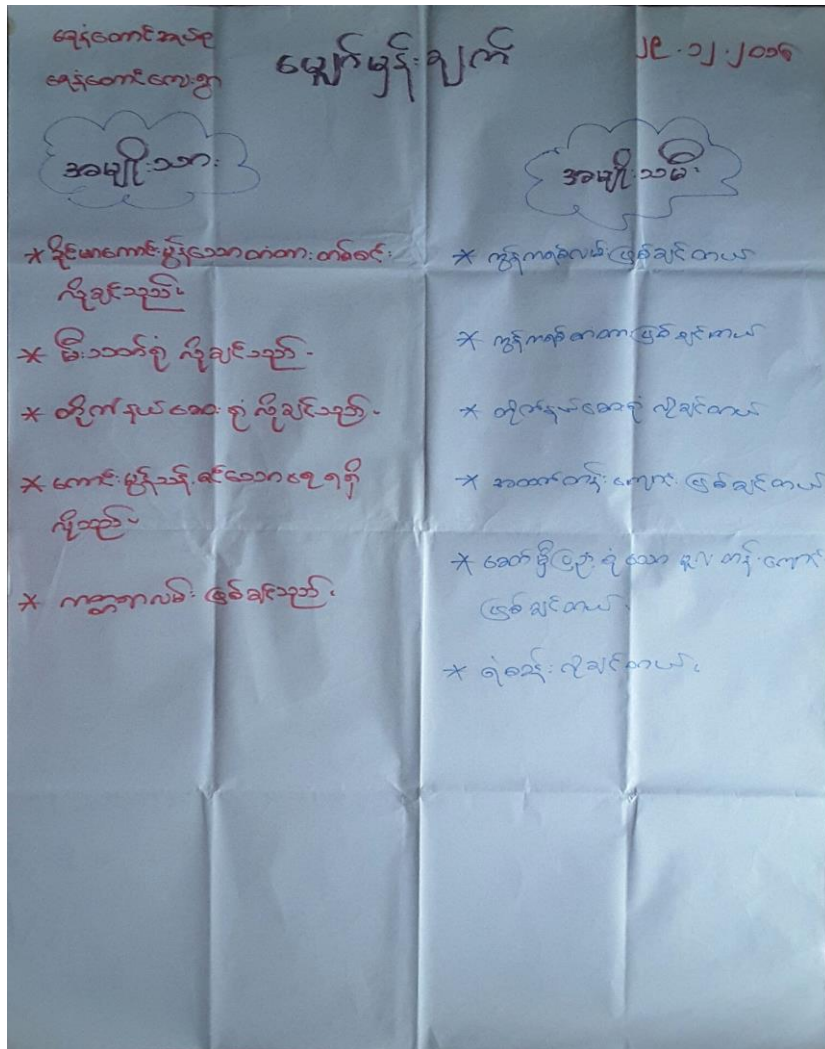 ရေနံတောင်အုပ်စု
ရေနံတောင်ကျေးရွာ
မျှော်မှန်းချက်
၂၉.၁၂.၂၀၁၆
အမျိုးသား
* ခိုင်မာကောင်းမွန်သောတံတားတစ်စင်း
လိုချင်သည်။
* မီးသတ်ရုံ လိုချင်သည်။
* တိုက်နယ်ဆေးရုံ လိုချင်သည်။
* ကောင်းမွန်သန့်ရှင်းသောရေရရှိ
လိုသည်။
* ကတ္တရာလမ်း ဖြစ်ချင်သည်။
အမျိုးသမီး
* ကွန်ကရစ်လမ်းဖြစ်ချင်တယ်
* ကွန်ကရစ်တံတားဖြစ်ချင်တယ်
* တိုက်နယ်ဆေးရုံ လိုချင်တယ်
* အထက်တန်းကျောင်းဖြစ်ချင်တယ်
* ခေတ်မှီပြည့်စုံသော မူလတန်းကျောင်း
ဖြစ်ချင်တယ်။
* ရဲစခန်းလိုချင်တယ်။